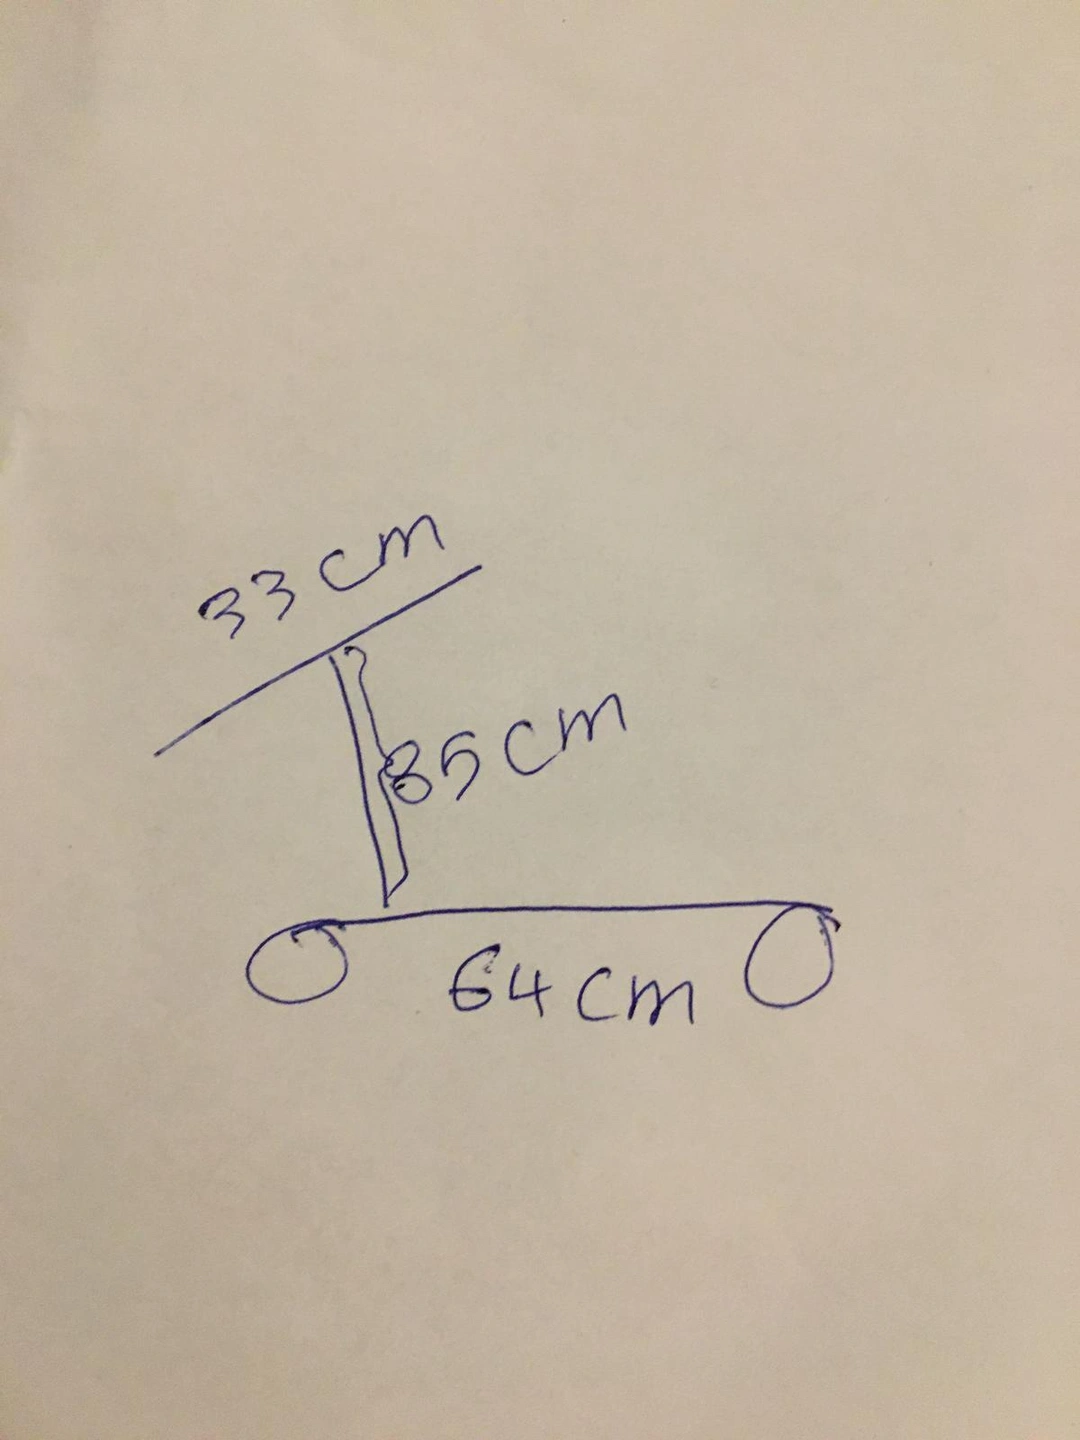 33 cm
85 cm
64 cm